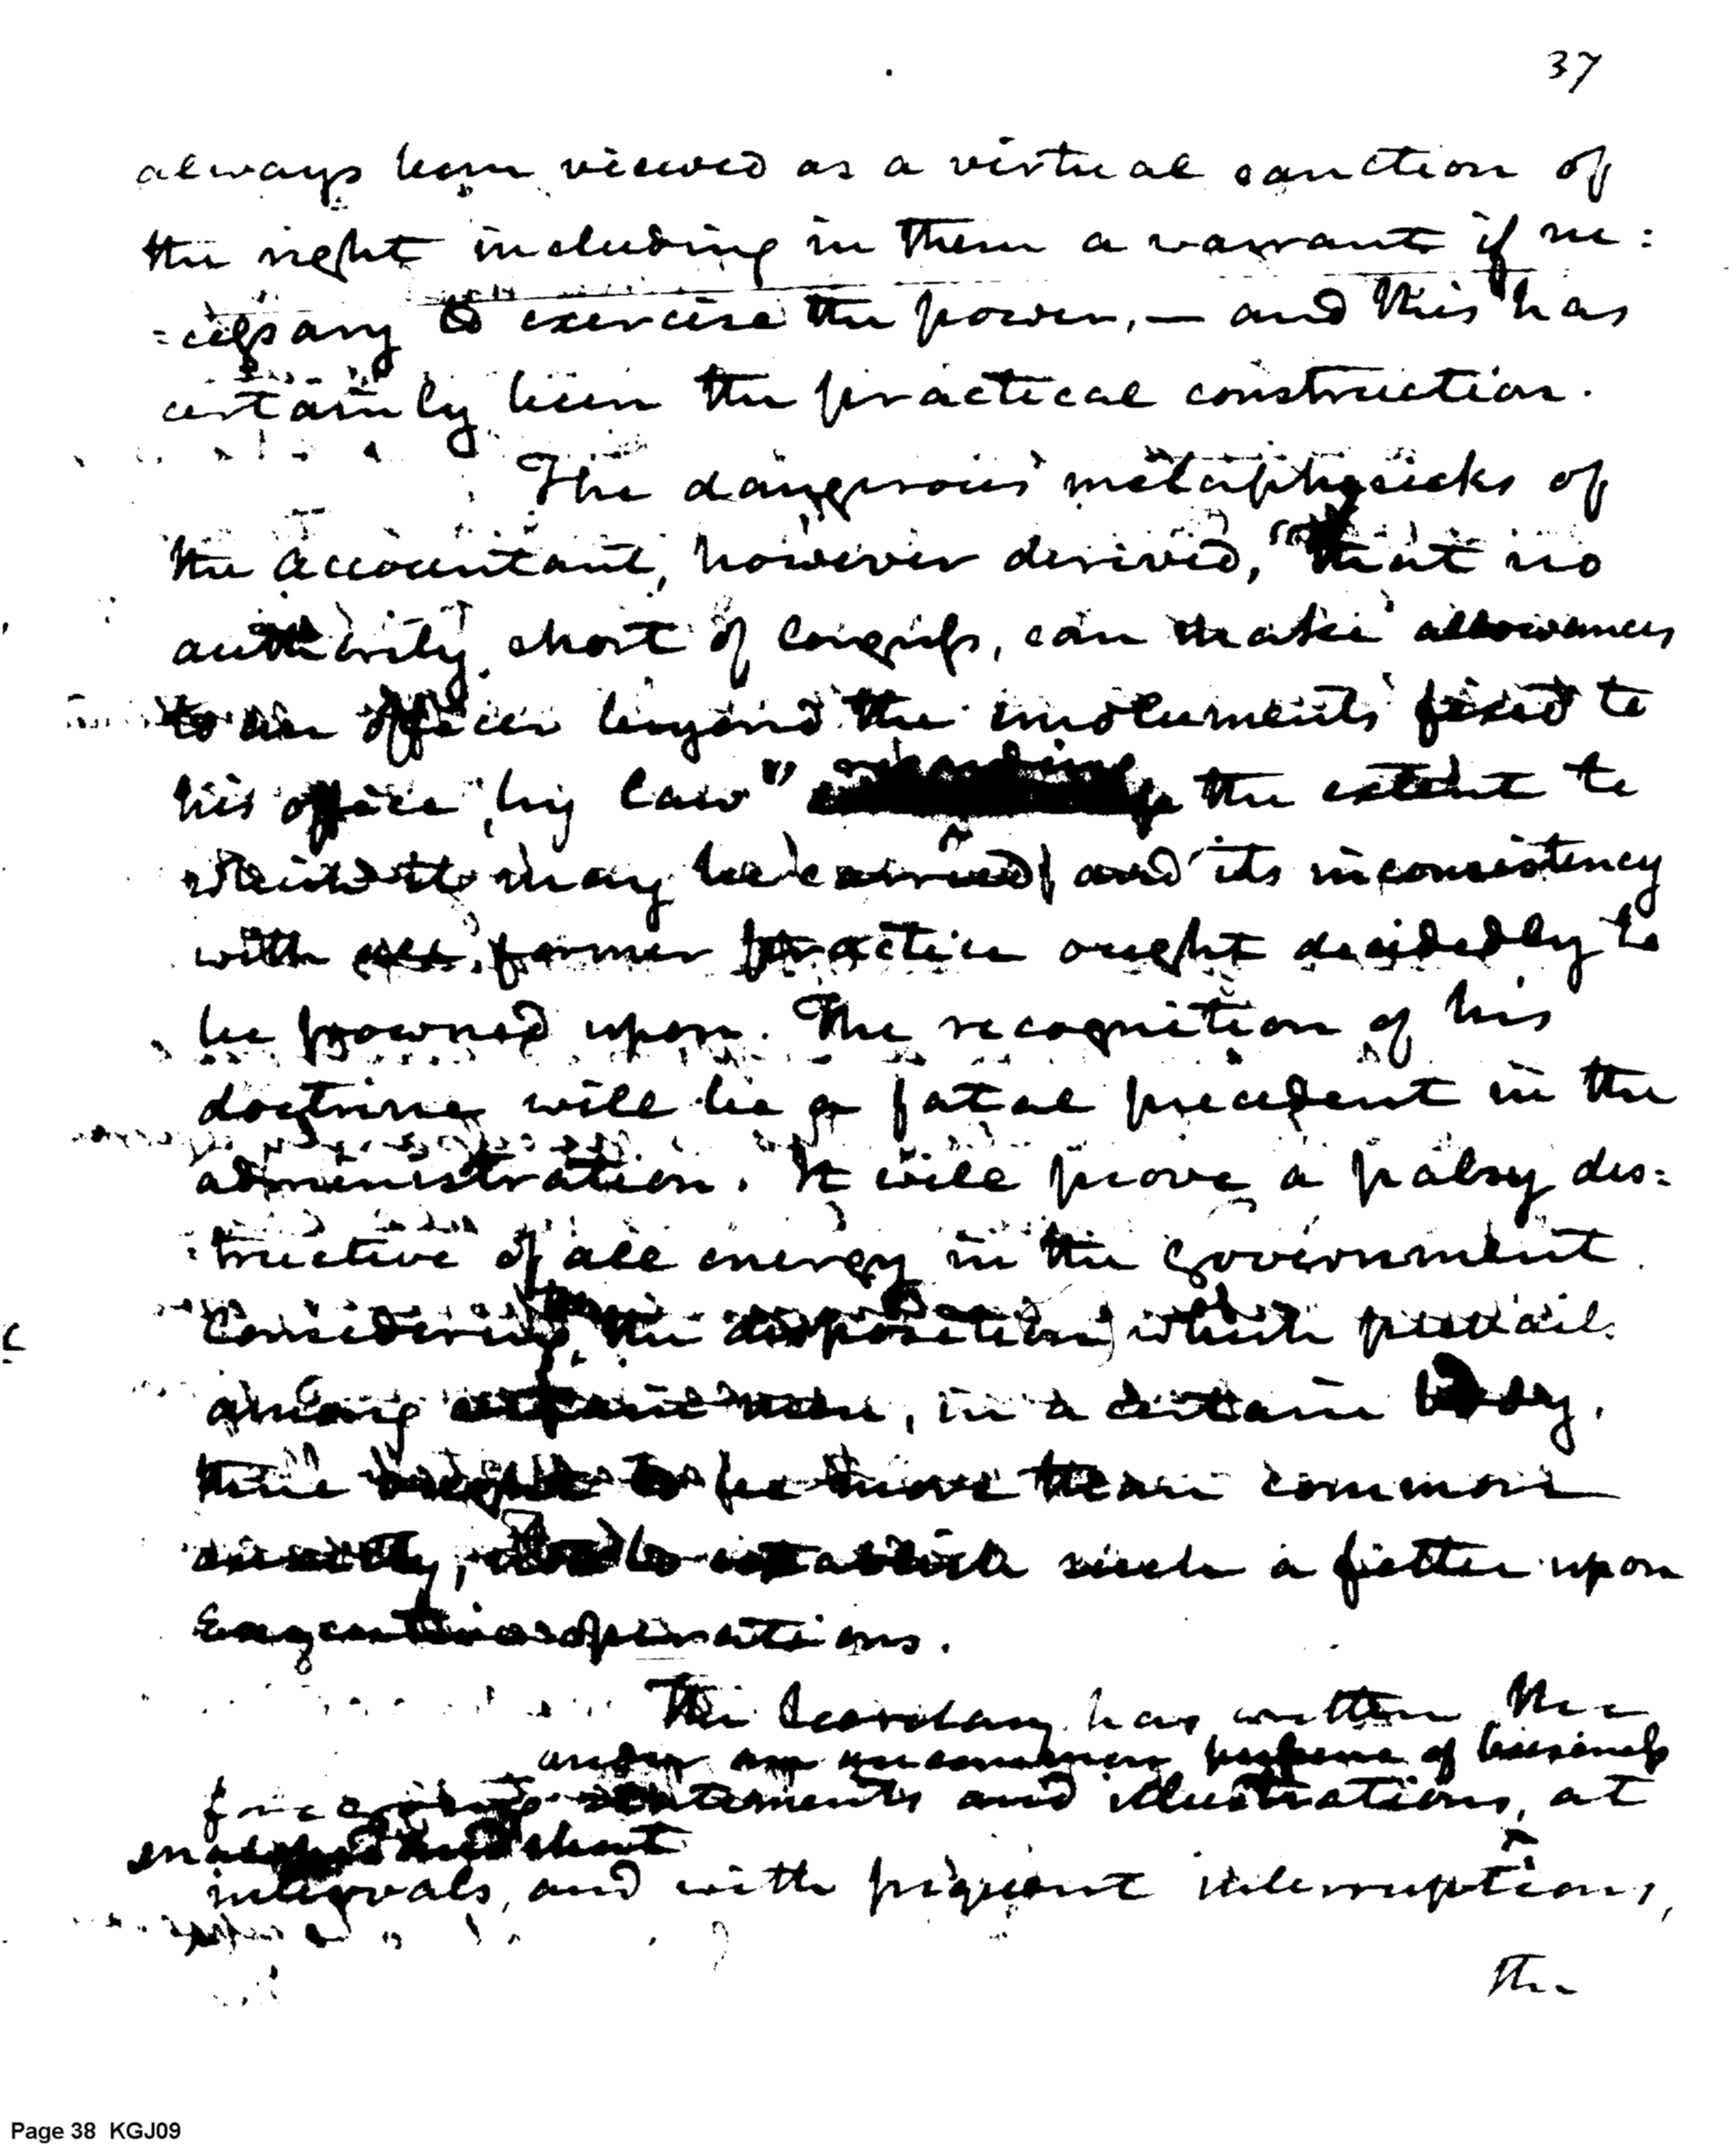 37
always been viewed as a virtual sanction of
the right including in them a warrant if ne:
=cessary to exercise the power, — and this has
certainly been the practical construction.
The dangerous metaphysicks of
the accountant, however derived, "that no
authority short of Congress, can make allowances
to an officer beyond the emoluments fixed to
his office by law" the extent to
which it may be carried and its inconsistency
with all former practice ought decidedly to
be frowned upon. The recognition of his
doctrine will be a fatal precedent in the
administration. It will prove a palsy des:
:tructive of all energy in the Government.
Considering the disposition which prevails
among in a certain body,
there ought to be more than common
such a fetter upon
operations.
The Secretary has written the
under an uncommon pressure of business
foregoing statements and illustrations, at
short
intervals, and with frequent interruptions,
the
Page 38 KGJ09